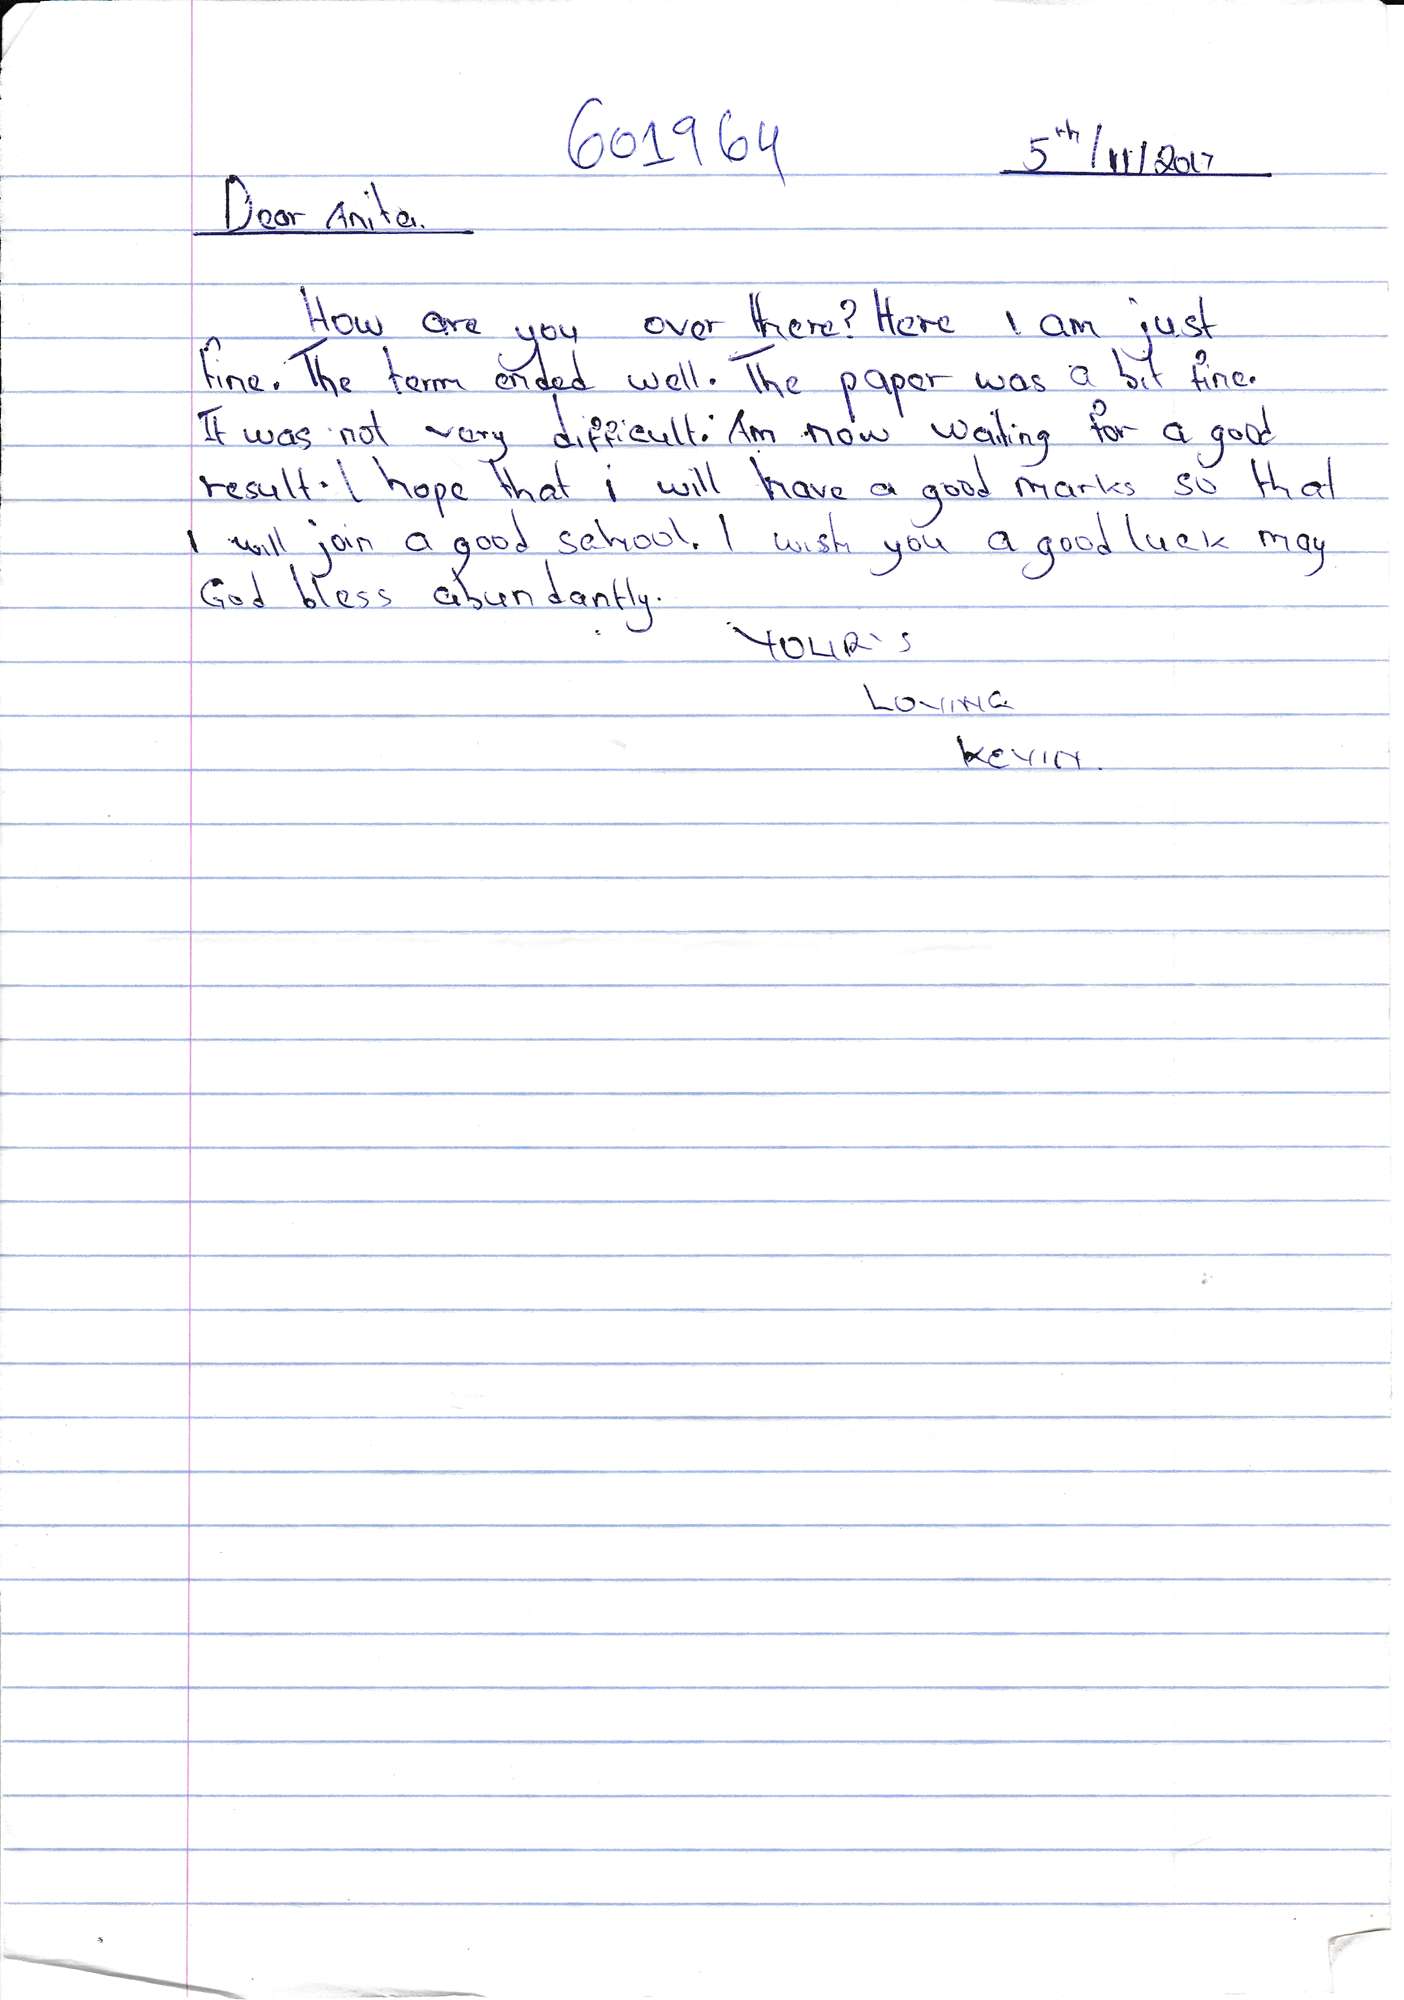 601964
5th/11/2017
Dear Anita.
How are you over there? Here I am just
fine. The term ended well. The paper was a bit fine.
It was not very difficult. Am now waiting for a good
result. I hope that i will have a good marks so that
I will join a good school. I wish you a good luck may
God bless abundantly.
YOUR'S
LOVING
KEVIN.